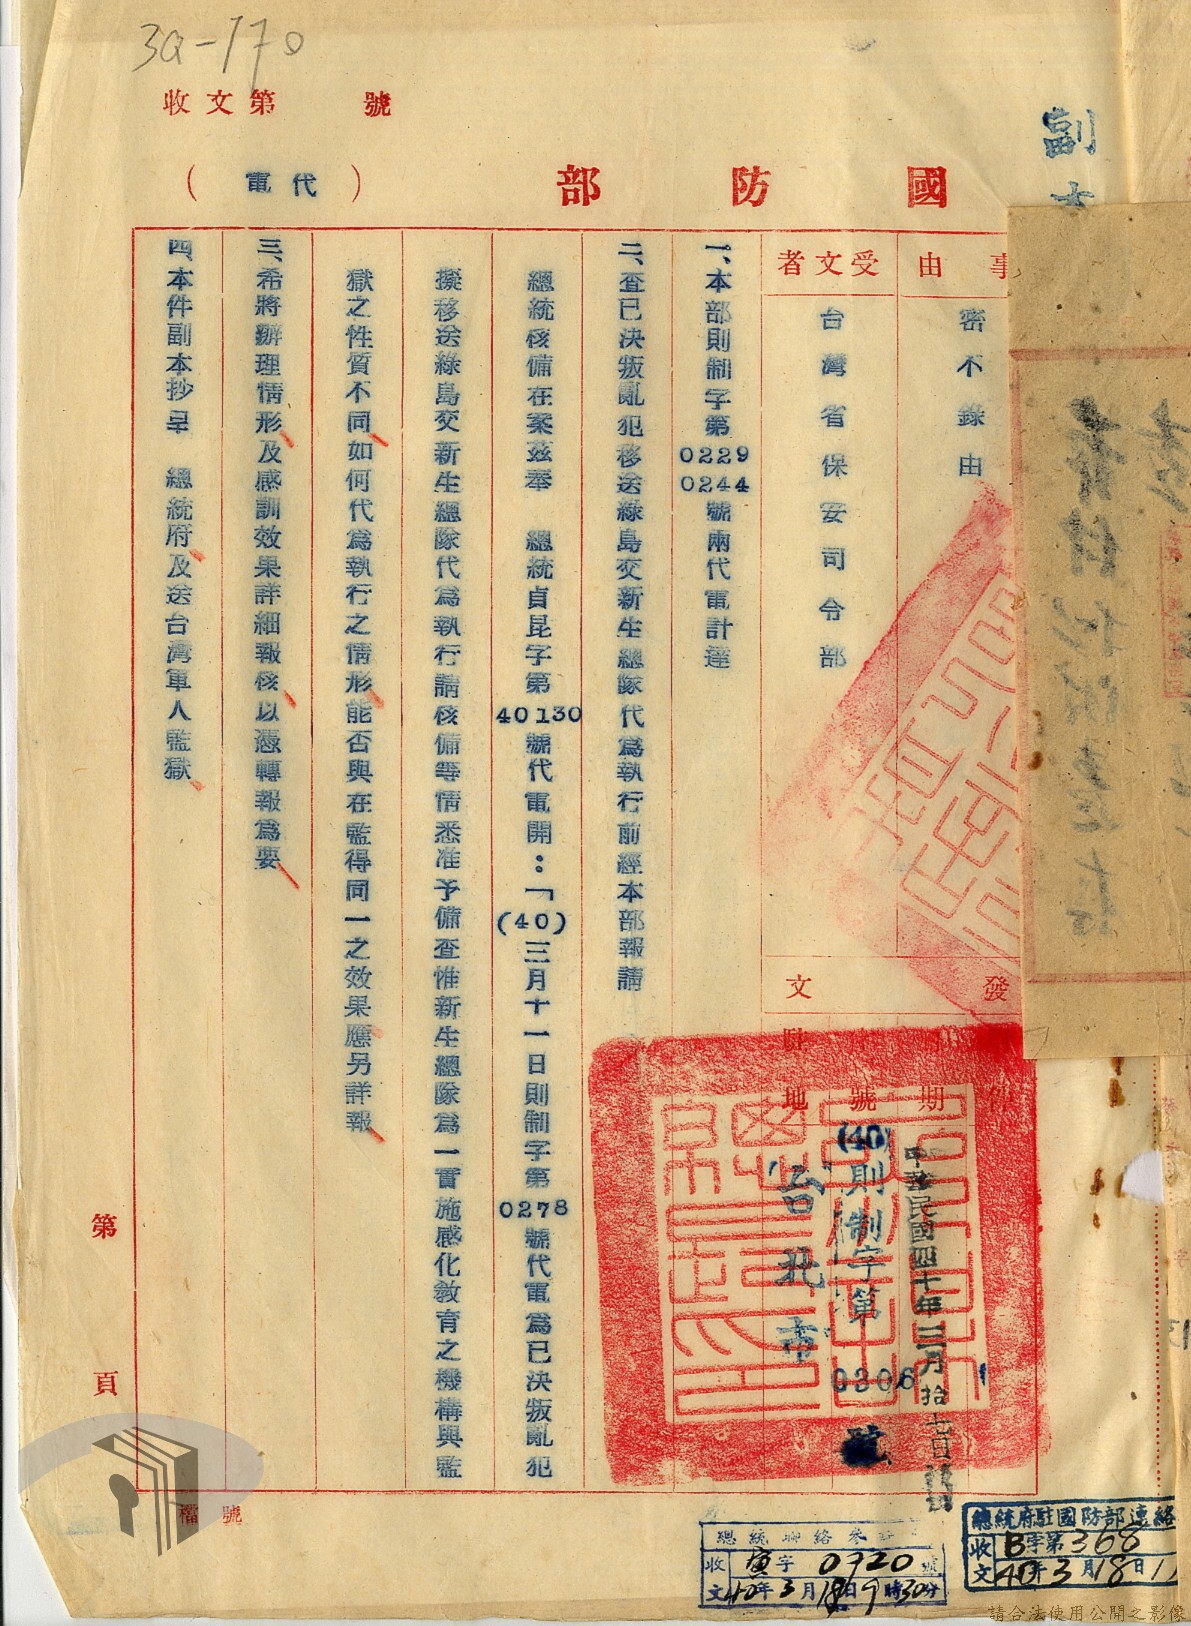 3a-170
收文第 號
國防部
(代電)
副本
事由
密不錄由
受文者
台灣省保安司令部
發文
期
中華民國四十年三月拾七日
號
(40)則制字第0306號
駐地
台北市
一、本部則制字第0229 0244號兩代電計達
二、查已決叛亂犯移送綠島交新生總隊代為執行前經本部報請
總統核備在案茲奉 總統貞昆字第40130號代電開：「(40)三月十一日則制字第0278號代電為已決叛亂犯
擬移送綠島交新生總隊代為執行請核備等情悉准予備查惟新生總隊為一實施感化教育之機構與監
獄之性質不同如何代為執行之情形能否與在監得同一之效果應另詳報
三、希將辦理情形及感訓效果詳細報核以憑轉報為要
四、本件副本抄呈 總統府及送台灣軍人監獄
第 頁
檔號
總統府駐國防部連絡
收文 B字第368
40年3月18日11
總統聯絡參
收文 寅字0920號
40年3月18日9時30分
請合法使用公開之影像